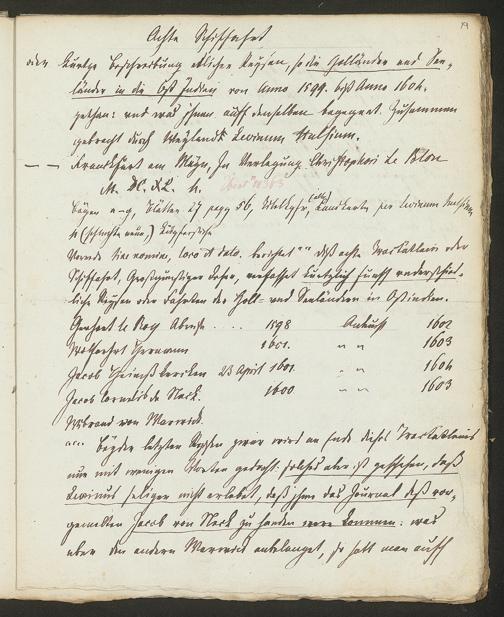 19
Achte Schiffahrt
oder kurtze Beschreibung etlicher Reysen, so die Holländer und See-
länder in die Ost Indien von Anno 1599. biß Anno 1604.
gethan: und was ihnen auff denselben begegnet. Zusammen
gebracht durch Weylandt Levinum Hulsium.
Franckfurt am Mayn, In Verlegung Christophori Le Blon
M. DC. XL.
Bogen a-g, Blätter 27 pagg 56, Titelkupfer, Landkarte per Levinum Hulsium
Vorrede sine nomine, loco et dato. berichtet deß achte Tractatlein oder
Schiffahrt, Großgünstiger Leser, verfasset kürtzlich fünff underschied-
liche Reysen oder Fahrten der Holl- und Seeländern in Ostindien.
Gerhart le Roy Abreise .... 1598 Ankunft 1602
Wolfhart Hermann 1601. " " 1603
Jacob Heinrich 23 April 1601 " " 1604
Jacob Cornelis de Neck. 1600 " " 1603
Wibrand von Warwick.
Beyder letzten Reysen zwar wird am Ende dieses Tractatleins
nur mit wenigen Worten gedacht: solches aber ist geschehen, daß
Levinus seliger nicht erlebet, daß ihme das Journal deß vor-
gemelten Jacob von Neck zu handen were kommen: was
aber den andern Warwick anbelanget, so hatt man auff